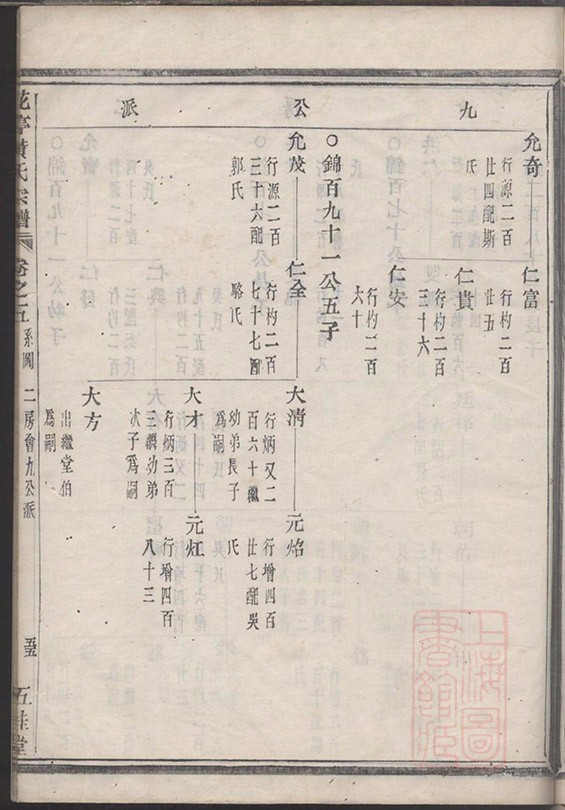 九公派
允奇
行源二百
廿四配斯
氏
仁富
行杓二百
廿五
仁貴
行杓二百
三十六
仁安
行杓二百
六十
○錦百九十一公五子
允茂
行源二百
三十六配
郭氏
仁全
行杓二百
七十七配
駱氏
大清
行炳又二
百六十繼
幼弟長子
爲嗣
元焰
行增四百
廿七配吳
氏
大才
行炳三百
三繼幼弟
次子爲嗣
元灴
行增四百
八十三
大方
出繼堂伯
爲嗣
花亭黃氏宗譜
卷之五
系圖
二房會九公派
五桂堂
上海圖書館藏